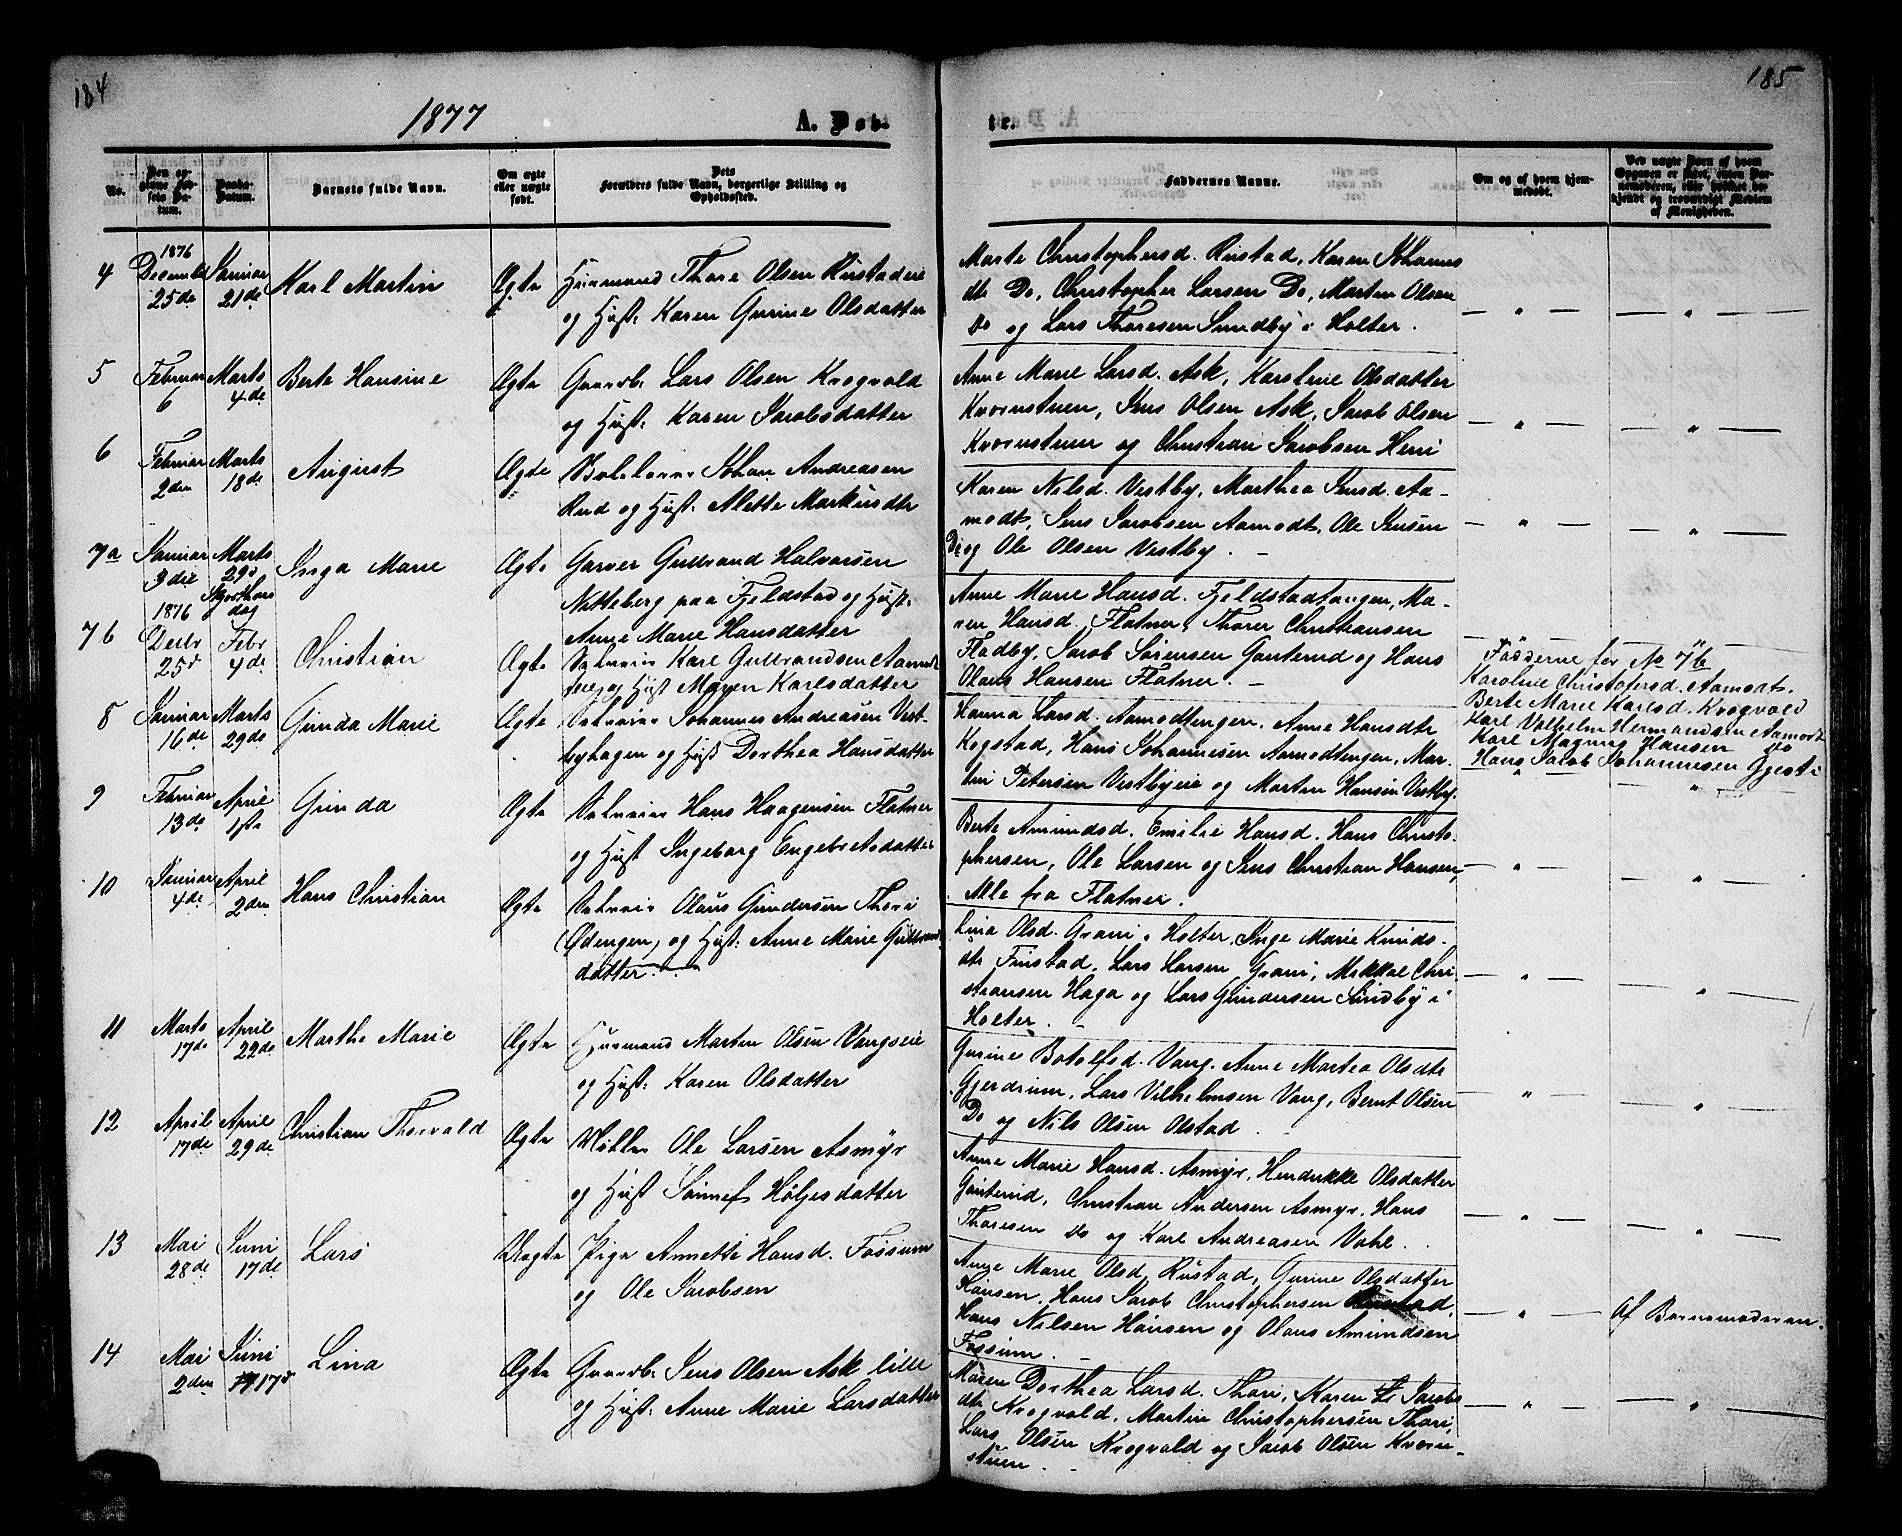 184
185
1877
A. Døb-
te.
No.
Den opgivne Fødsels Datum.
Daabs-Datum.
Barnets fulde Navn.
Om ægte eller uægte født.
Dets Forældres fulde Navn, borgerlige Stilling og Opholdssted.
Faddernes Navne.
Om og af hvem hjemmedøbt.
4
1876
December
25de
Januar
21de
Karl Martin
Ægte
Huusmand Thore Olsen Rustadeie
og Hust: Karen Gurine Olsdatter
Marte Christophersd. Rustad, Karen Johannes
dtr Do, Christopher Larsen Do, Marten Olsen
do og Lars Thoresen Sundby i Holter.
5
Februar
6
Marts
4de
Berte Hansine
Ægte
Gaardb. Lars Olsen Krogvold
og Hust: Karen Jacobsdatter
Anne Marie Larsd. Ask, Karoline Olsdatter
Kværnstuen, Jens Olsen Ask, Jacob Olsen
Kværnstuen og Christian Jacobsen Heni
6
Februar
2den
Marts
18de
August
Ægte
Johan Andreasen
Rud og Hust: Alette Markusdtr
Karen Nilsd. Vestby, Marthea Jensd. Aa-
modt, Jens Jacobsen Aamodt, Ole Jensen
Do og Ole Olsen Vestby.
7a
Januar
3die
Marts
29de
Skjærthors
dag
Inga Marie
Ægte
Garver Gulbrand Halvorsen
Nitteberg paa Fjeldstad og Hust:
Anne Marie Hansdatter
Anne Marie Hansd. Fjeldstadtangen, Ma-
ren Hansd. Flatner, Thorer Christiansen
Fladby, Jacob Sørensen Gauterud og Hans
Olaus Hansen Flatner.
7b
1876
Decbr
25de
Febr
4de
Christian
Ægte
Selveier Karl Gulbrandsen Aamodt
eie og Hust Maren Karlsdatter
Fadderne for No 7b
Karoline Christofersd. Aamodt.
Berte Marie Karlsd. Krogvold
Karl Vilhelm Hermandsen Aamodt
Karl Magnus Hansen do
Hans Jacob Johannesen Gjesti
8
Januar
16de
Marts
29de
Gunda Marie
Ægte
Selveier Johannes Andreasen Vest-
byhagen og Hust Dorthea Hansdatter
Hanna Larsd. Aamodtengen, Anne Hansdtr
Kogstad, Hans Johannesen Aamodtengen, Mar-
tin Petersen Vestbyeie og Morten Hansen Vestby.
9
Februar
13de
April
1ste
Gunda
Ægte
Selveier Hans Haagensen Flatner
og Hust Ingeborg Engebretsdatter
Berte Amundsd. Emilie Hansd. Hans Christo-
phersen, Ole Larsen og Jens Christian Hansen,
Alle fra Flatner.
10
Januar
4de
April
2den
Hans Christian
Ægte
Selveier Olaus Gundersen Thori
(Ødengen) og Hust: Anne Marie Gulbrands
datter.
Lina Olsd. Grani i Holter, Inge Marie Knuds-
dtr Finstad, Lars Larsen Grani, Mikkel Chri-
stiansen Haga og Lars Gundersen Sundby i
Holter.
11
Marts
17de
April
22de
Marthe Marie
Ægte
Huusmand Marten Olsen Vangseie
og Hust: Karen Olsdatter
Gurine Botolfsd. Vang. Anne Martea Olsdtr
Gjerdrum, Lars Vilhelmsen Vang, Bernt Olsen
Do og Nils Olsen Olstad.
12
April
17de
April
29de
Christian Thorvald
Ægte
Møller Ole Larsen Asmyr
og Hust Sønnef Holjesdatter
Anne Marie Hansd. Asmyr, Hendrikke Olsdatter
Gauterud, Christian Andersen Asmyr, Hans
Thoresen do og Karl Andreasen Vahl.
13
Mai
28de
Juni
17de
Lars
Uægte
Pige Annette Hansd. Fossum
og Ole Jacobsen
Anne Marie Olsd. Rustad, Gurine Olsdatter
Hansen, Hans Jacob Christophersen Rustad,
Hans Nilsen Hansen og Olaus Amundsen
Fossum.
Af Barnemoderen.
14
Mai
2den
Juni
17de
Lina
Ægte
Gaardb. Jens Olsen Ask lille
og Hust: Anne Marie Larsdatter
Maren Dorthea Larsd. Thori, Karen Jacobs
dtr Krogvold, Martin Christophersen Thori,
Lars Olsen Krogvold og Jacob Olsen Kværn-
stuen.